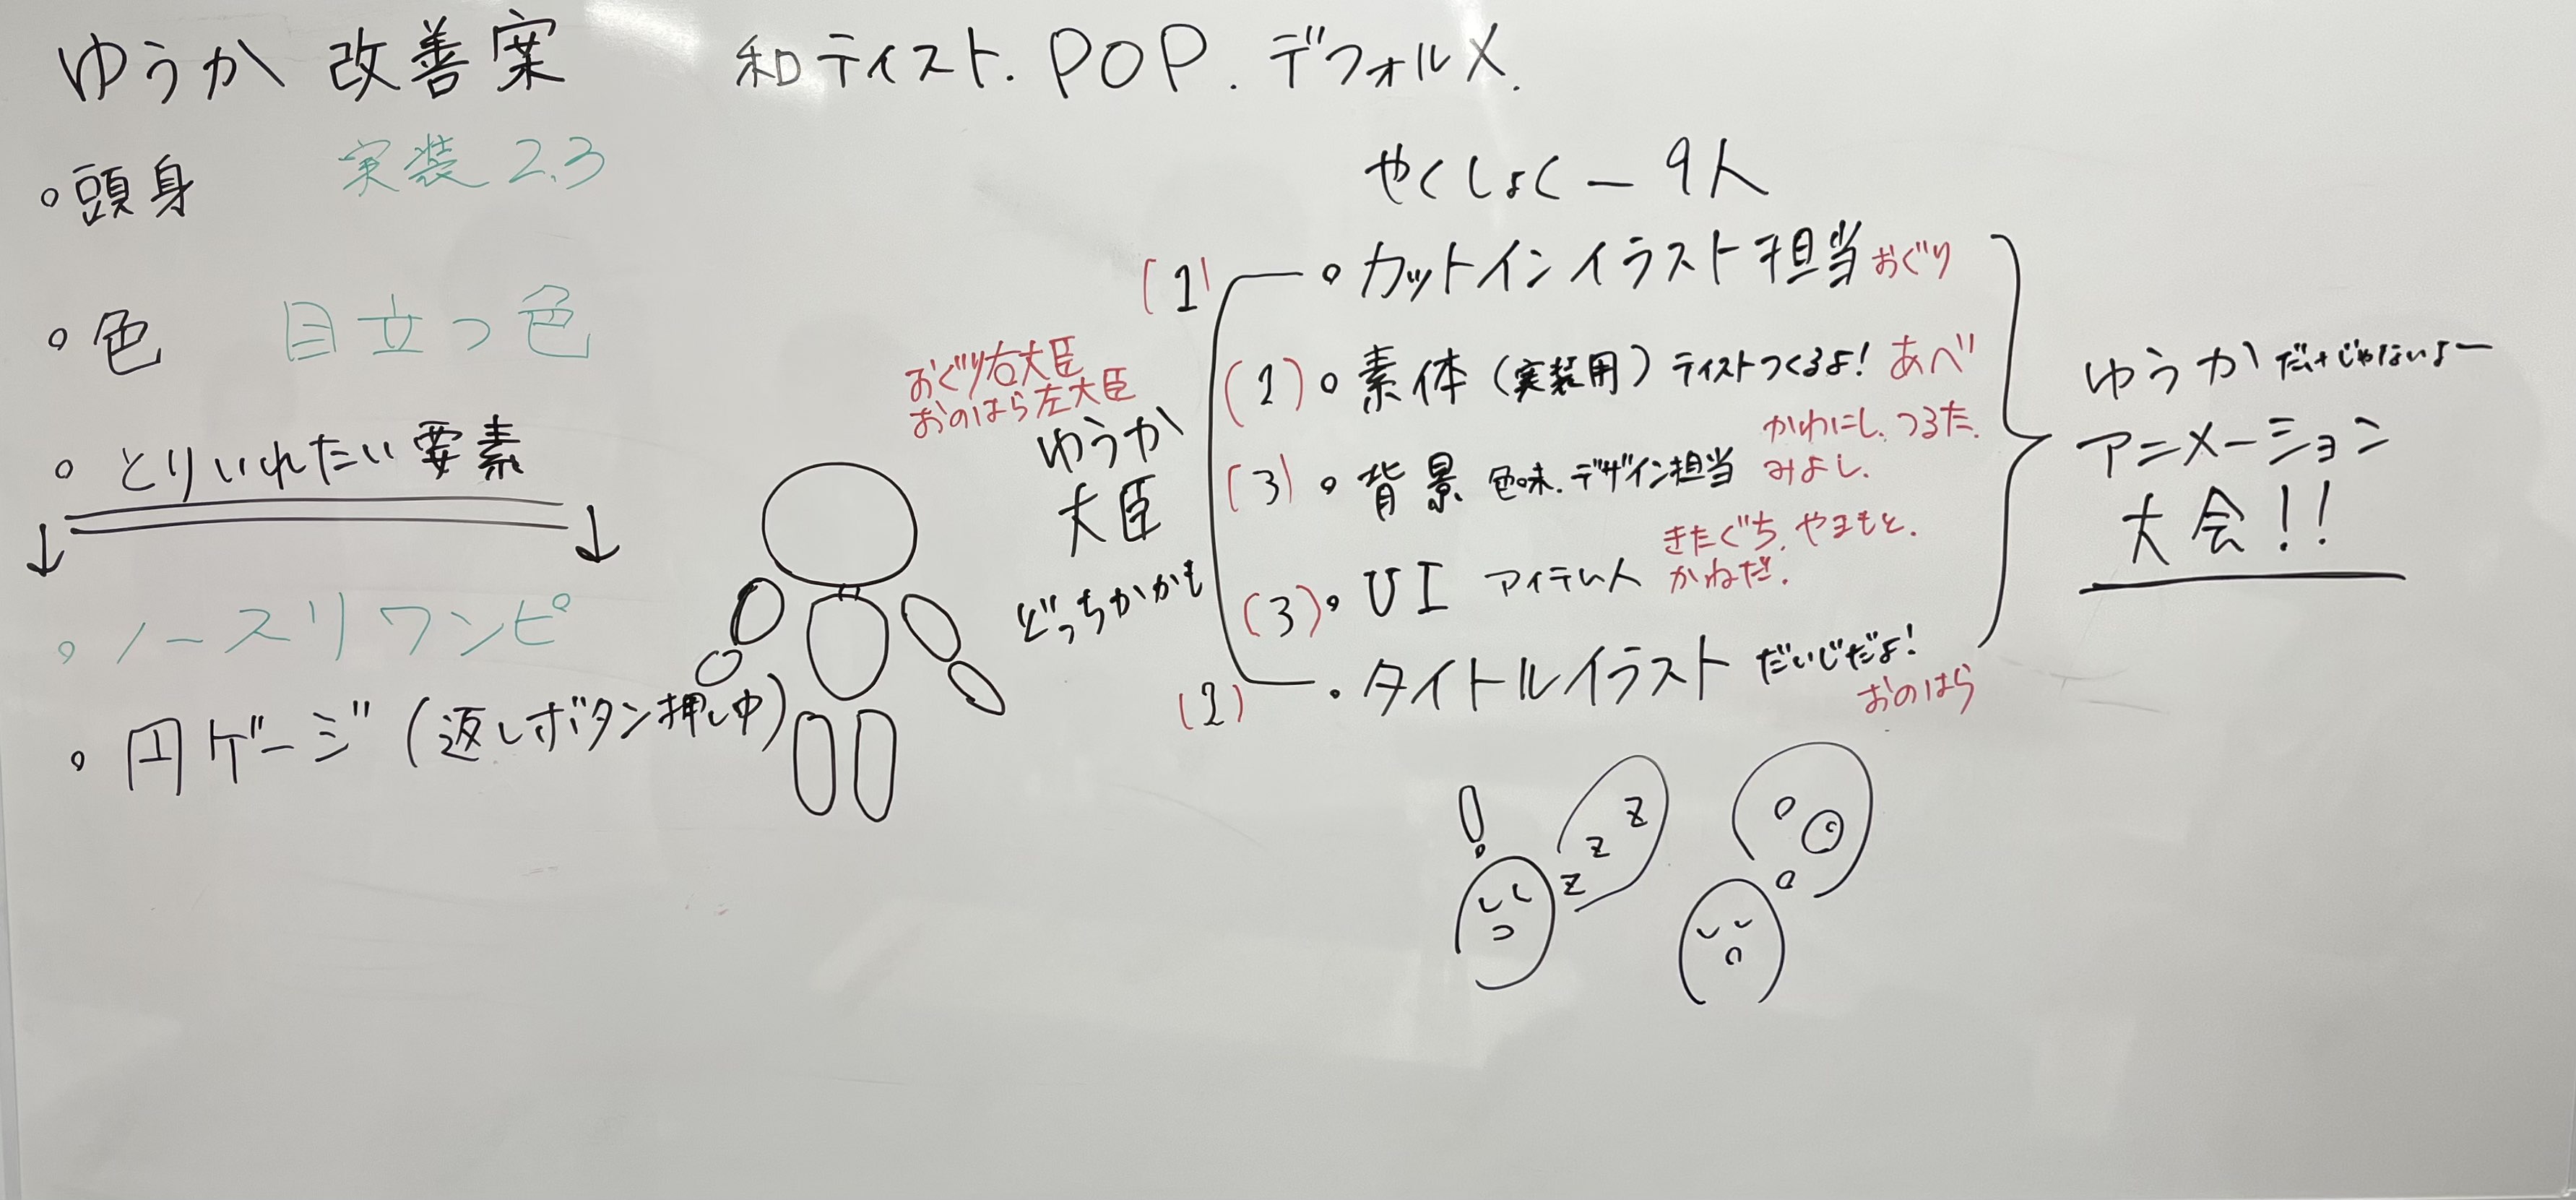 ゆうか 改善案
和ティスト. POP. デフォルメ.
。頭身 実装 2.3
。色 目立つ色
。とりいれたい要素
。ノースリワンピ
。円ゲージ (返しボタン押し中)
おぐり右大臣
おのはら左大臣
ゆうか
大臣
どっちかかも
やくしょく ー 9人
(1) 。カットインイラスト担当 おぐり
(1) 。素体 (実装用) ティストつくるよ! あべ
(3) 。背景 色味.デザイン担当 かわにし、つるた.
みよし.
(3) 。UI アイテム人 きたぐち、やまもと.
かねだ.
(1) ・タイトルイラスト だいじだよ!
おのはら
ゆうか だけじゃないよー
アニメーション
大会!!
!
z z z